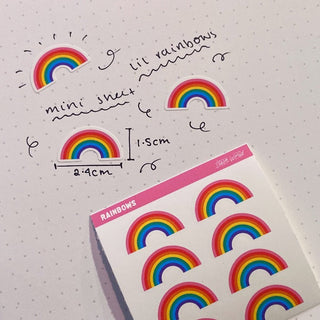 lil rainbows
mini sheet
1.5cm
2.4cm
RAINBOWS